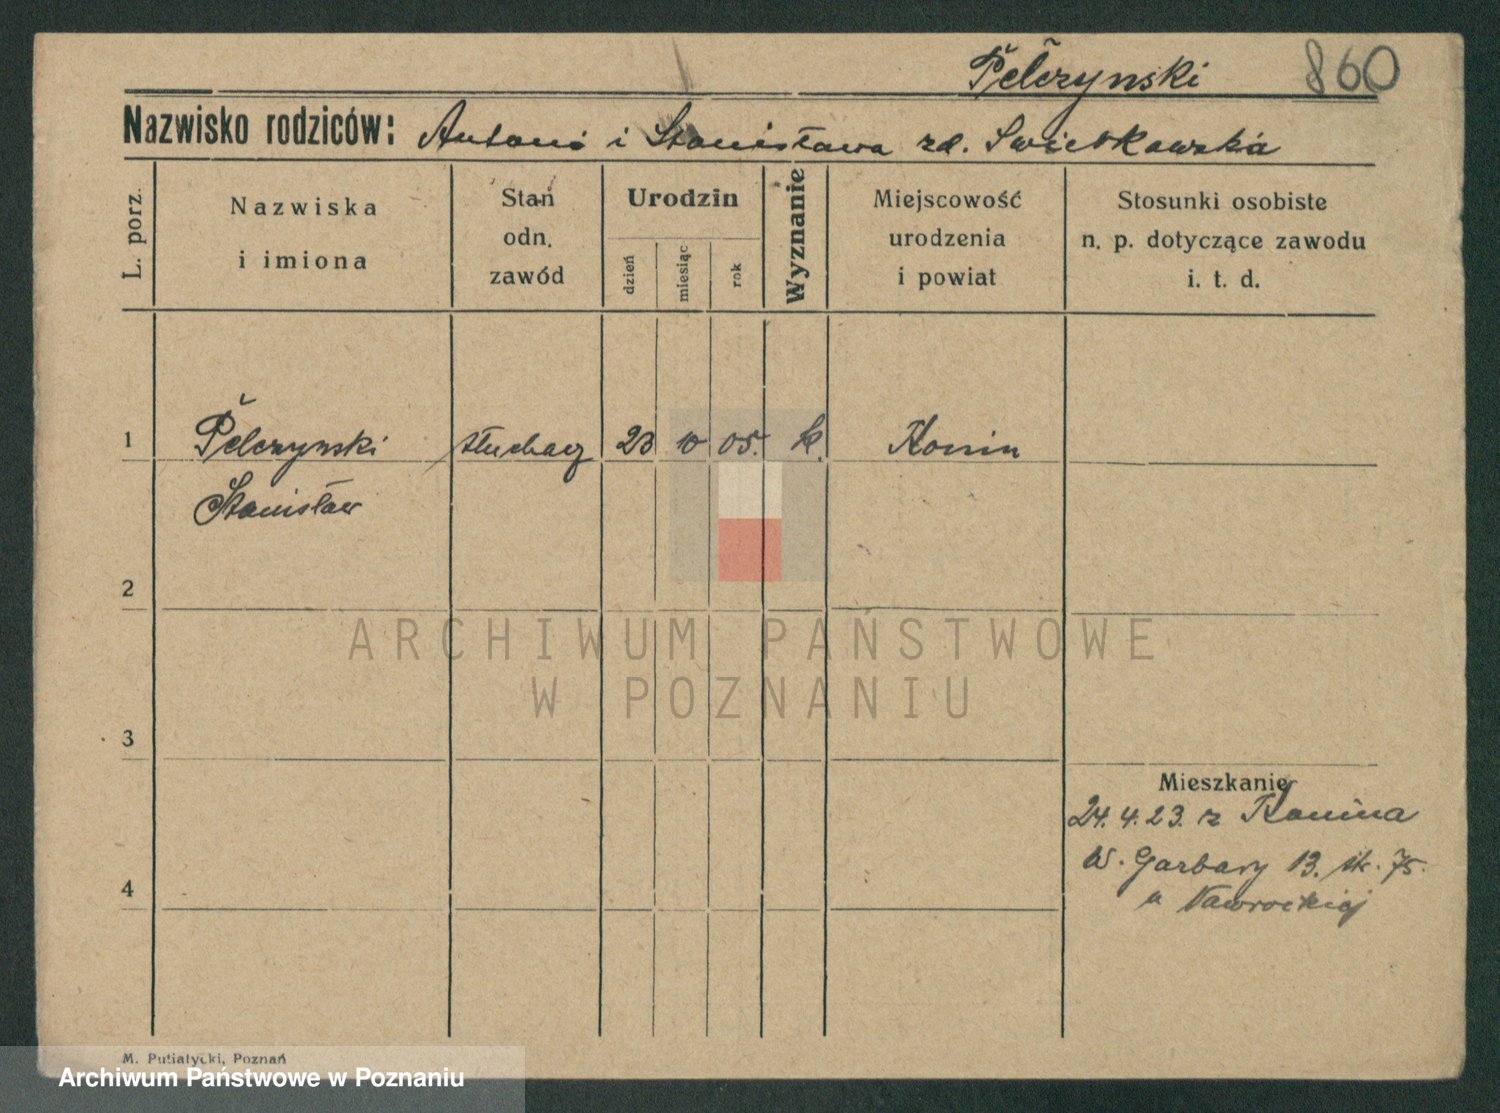 Pełczynski 860
Nazwisko rodziców: Antoni i Stanisława zd.
L. porz.
Nazwiska
i imiona
Stan
odn.
zawód
Urodzin
dzień
miesiąc
rok
Wyznanie
Miejscowość
urodzenia
i powiat
Stosunki osobiste
n. p. dotyczące zawodu
i. t. d.
1 Pełczynski słuchacz 23 10 05. k. Konin
Stanisław
2
ARCHIWUM PAŃSTWOWE
W POZNANIU
3
Mieszkanie
24. 4. 23. z Konina
W. Garbary 13. 75.
u Nawrockiej
4
M. Putiatycki, Poznań
Archiwum Państwowe w Poznaniu